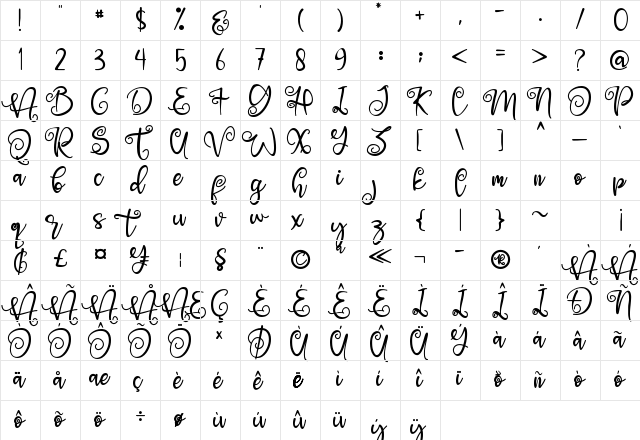 ! " # $ % & ' ( ) * + , - . / 0
1 2 3 4 5 6 7 8 9 : ; < = > ? @
A B C D E F G H I J K L M N O P
Q R S T U V W X Y Z [ \ ] ^ _ `
a b c d e f g h i j k l m n o p
q r s t u v w x y z { | } ~ ¡
¢ £ ¤ ¥ ¦ § ¨ © « ¬ ¯ ® ´ À Á
Â Ã Ä Å Æ Ç È É Ê Ë Ì Í Î Ï Ð Ñ
Ò Ó Ô Õ Ö × Ø Ù Ú Û Ü Ý à á â ã
ä å æ ç è é ê ë ì í î ï ð ñ ò ó
ô õ ö ÷ ø ù ú û ü ý ÿ